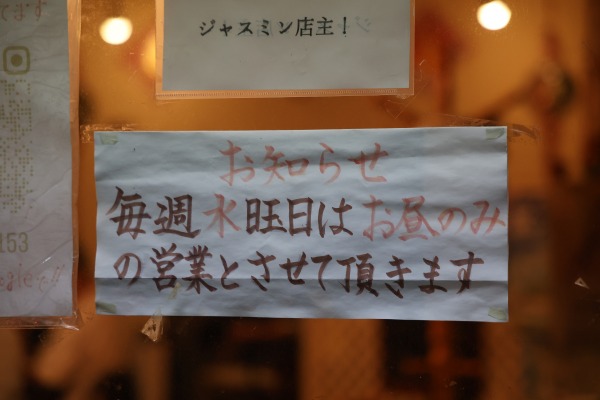 てます
ジャスミン店主！
153
お知らせ
毎週水旺日はお昼のみ
の営業とさせて頂きます